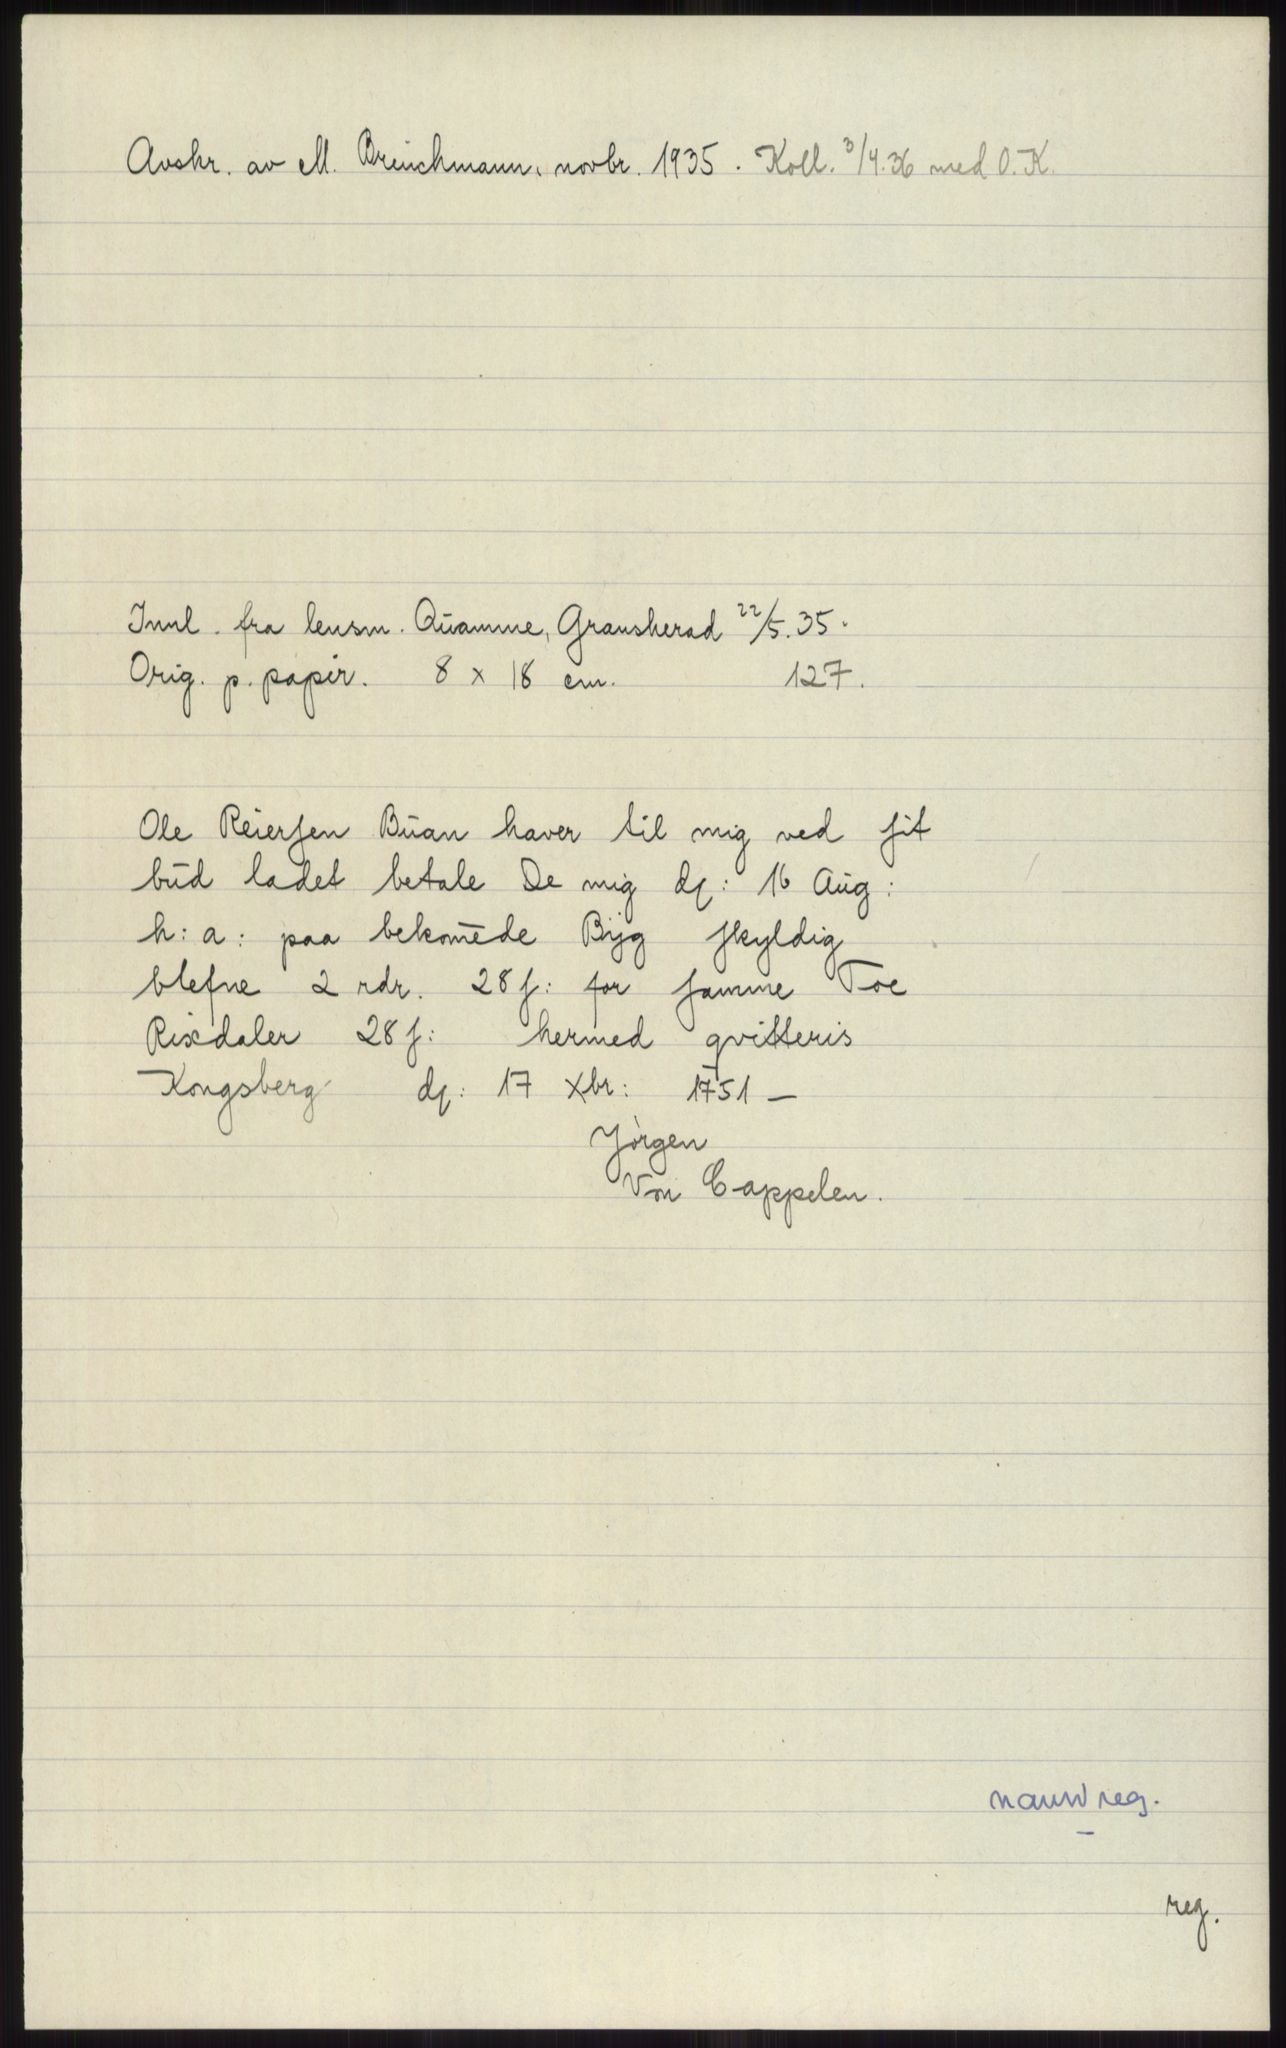 Avskr. av M. Brinchmann, novbr. 1935. Koll. 3/4.36 med O.K.
Innl. fra lensm. Quamme, Gransherad 22/5.35.
Orig. p. papir. 8 x 18 cm. 127.
Ole Reiersen Buan haver til mig ved sit
bud ladet betale De mig d: 16 Aug:
h: a: paa bekom̄ede Byg skyldig
blefne 2 rdr. 28 s: for samme Toe
Rixdaler 28 s: hermed qvitteris
Kongsberg d: 17 Xbr: 1751 —
Jörgen
Von Cappelen.
navnreg.
reg.